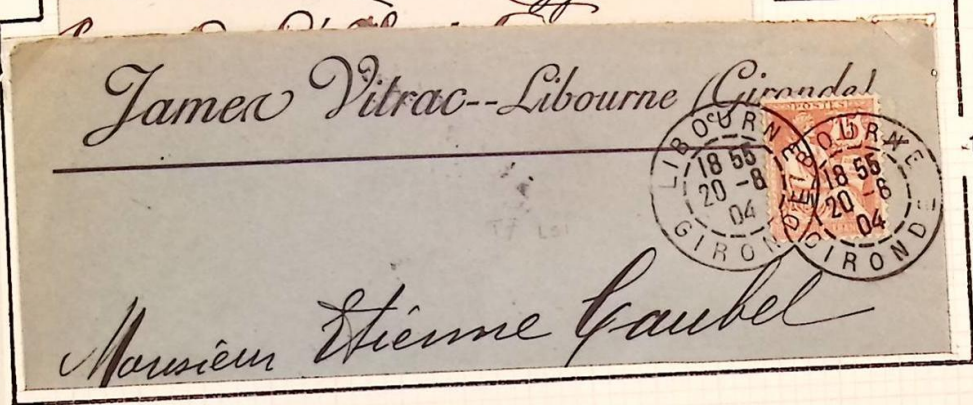 James Vitrac--Libourne (Gironde)
POSTES
15
LIBOURNE
18 55
20 -8
04
GIRONDE
LIBOURNE
18 55
20 -8
04
GIRONDE
Monsieur Etienne Caubel